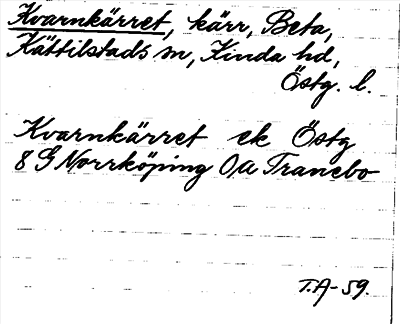 Kvarnkärret, kärr, Beta,
Kättilstads sn, Kinda hd,
Östg. l.
Kvarnkärret ek Östg
8 G Norrköping 0a Tranebo
T.A-59.